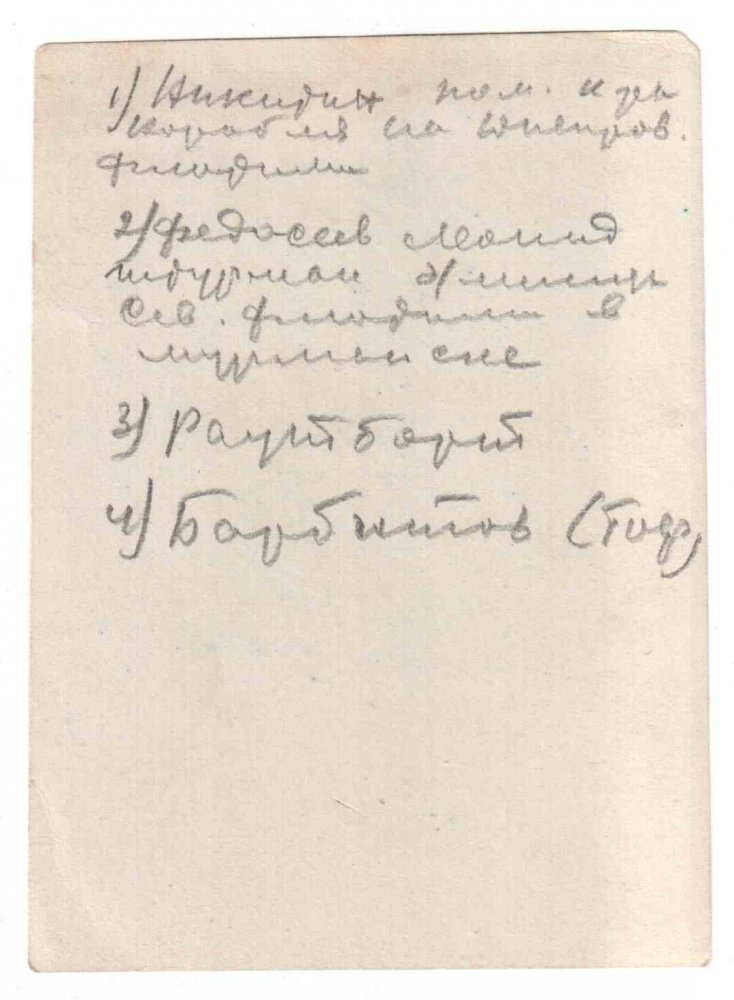 1) Никитин пом. к-ра
корабля на Днепров.
флотилии
2) Федосеев Леонид
штурман
Сев. флотилии в
мурманске
3) Раутборт
4) Барбитов (Тоф)